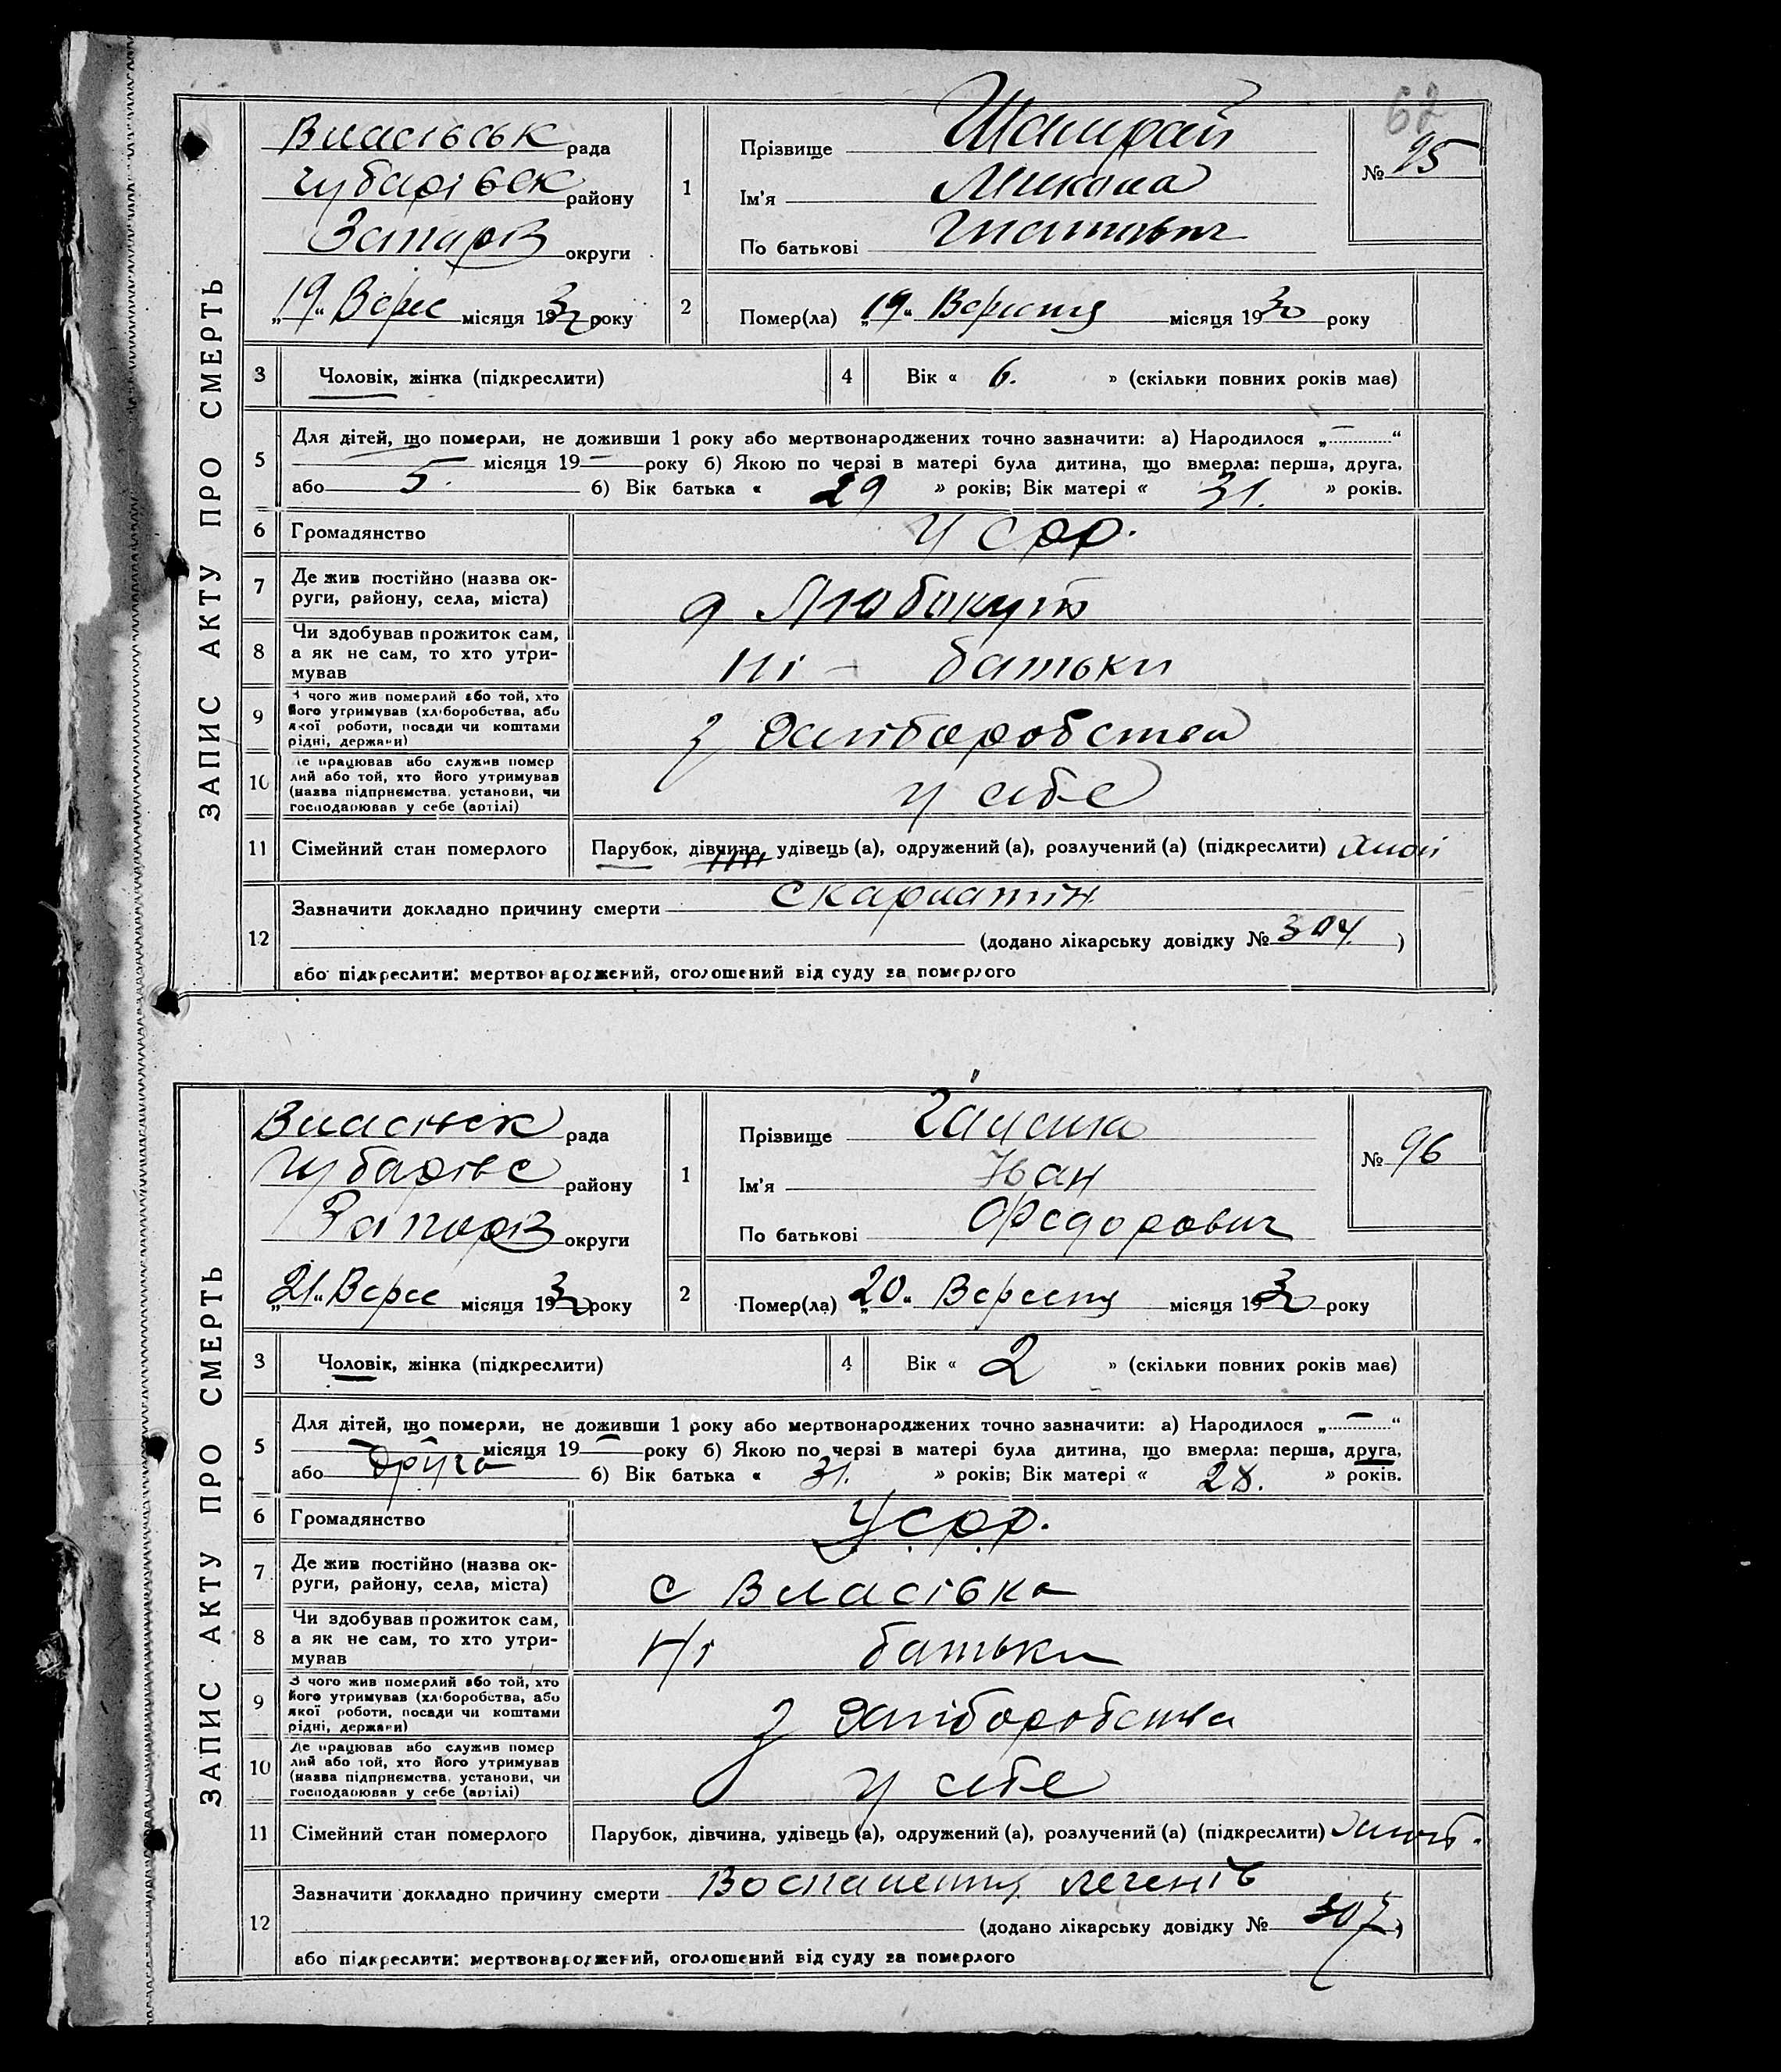 62
ЗАПИС АКТУ ПРО СМЕРТЬ
Власівськ рада
Чубарівськ району
Запоріз округи
„19“ Верес місяця 1930 року
1
Прізвище Шапрай
Ім'я Микола
По батькові Гнатович
№ 95
2 Помер(ла) „19“ Вересня місяця 1930 року
3 Чоловік, жінка (підкреслити)
4 Вік « 6. » (скільки повних років має)
5 Для дітей, що померли, не доживши 1 року або мертвонароджених точно зазначити: а) Народилося „—“
місяця 19— року б) Якою по черзі в матері була дитина, що вмерла: перша, друга,
або 5. б) Вік батька « 29 » років; Вік матері « 31. » років.
6 Громадянство УСРР.
7 Де жив постійно (назва ок-
руги, району, села, міста) Любокут
8 Чи здобував прожиток сам,
а як не сам, то хто утри-
мував Ні – батьки
9 З чого жив померлий або той, хто
його утримував (хліборобства, або
якої роботи, посади чи коштами
рідні, держави) з хліборобства
10 Де працював або служив помер
лий або той, хто його утримував
(назва підприємства, установи, чи
господарював у себе (артілі) у себе
11 Сімейний стан померлого Парубок, дівчина, удівець (а), одружений (а), розлучений (а) (підкреслити)
12 Зазначити докладно причину смерти скарлатін
(додано лікарську довідку № 304.)
або підкреслити: мертвонароджений, оголошений від суду за померлого
ЗАПИС АКТУ ПРО СМЕРТЬ
Власівськ рада
Чубарівс району
Запоріз округи
„21“ Верес місяця 1930 року
1
Прізвище
Ім'я Іван
По батькові Федорович
№ 96
2 Помер(ла) „20“ Вересня місяця 1930 року
3 Чоловік, жінка (підкреслити)
4 Вік « 2 » (скільки повних років має)
5 Для дітей, що померли, не доживши 1 року або мертвонароджених точно зазначити: а) Народилося „—“
— місяця 19— року б) Якою по черзі в матері була дитина, що вмерла: перша, друга,
або друга б) Вік батька « 31. » років; Вік матері « 28. » років.
6 Громадянство УСРР.
7 Де жив постійно (назва ок-
руги, району, села, міста) с Власівка
8 Чи здобував прожиток сам,
а як не сам, то хто утри-
мував Ні батьки
9 З чого жив померлий або той, хто
його утримував (хліборобства, або
якої роботи, посади чи коштами
рідні, держави) з хліборобства
10 Де працював або служив помер
лий або той, хто його утримував
(назва підприємства, установи, чи
господарював у себе (артілі) у себе
11 Сімейний стан померлого Парубок, дівчина, удівець (а), одружений (а), розлучений (а) (підкреслити)
12 Зазначити докладно причину смерти Воспалення легенів
(додано лікарську довідку № 307)
або підкреслити: мертвонароджений, оголошений від суду за померлого